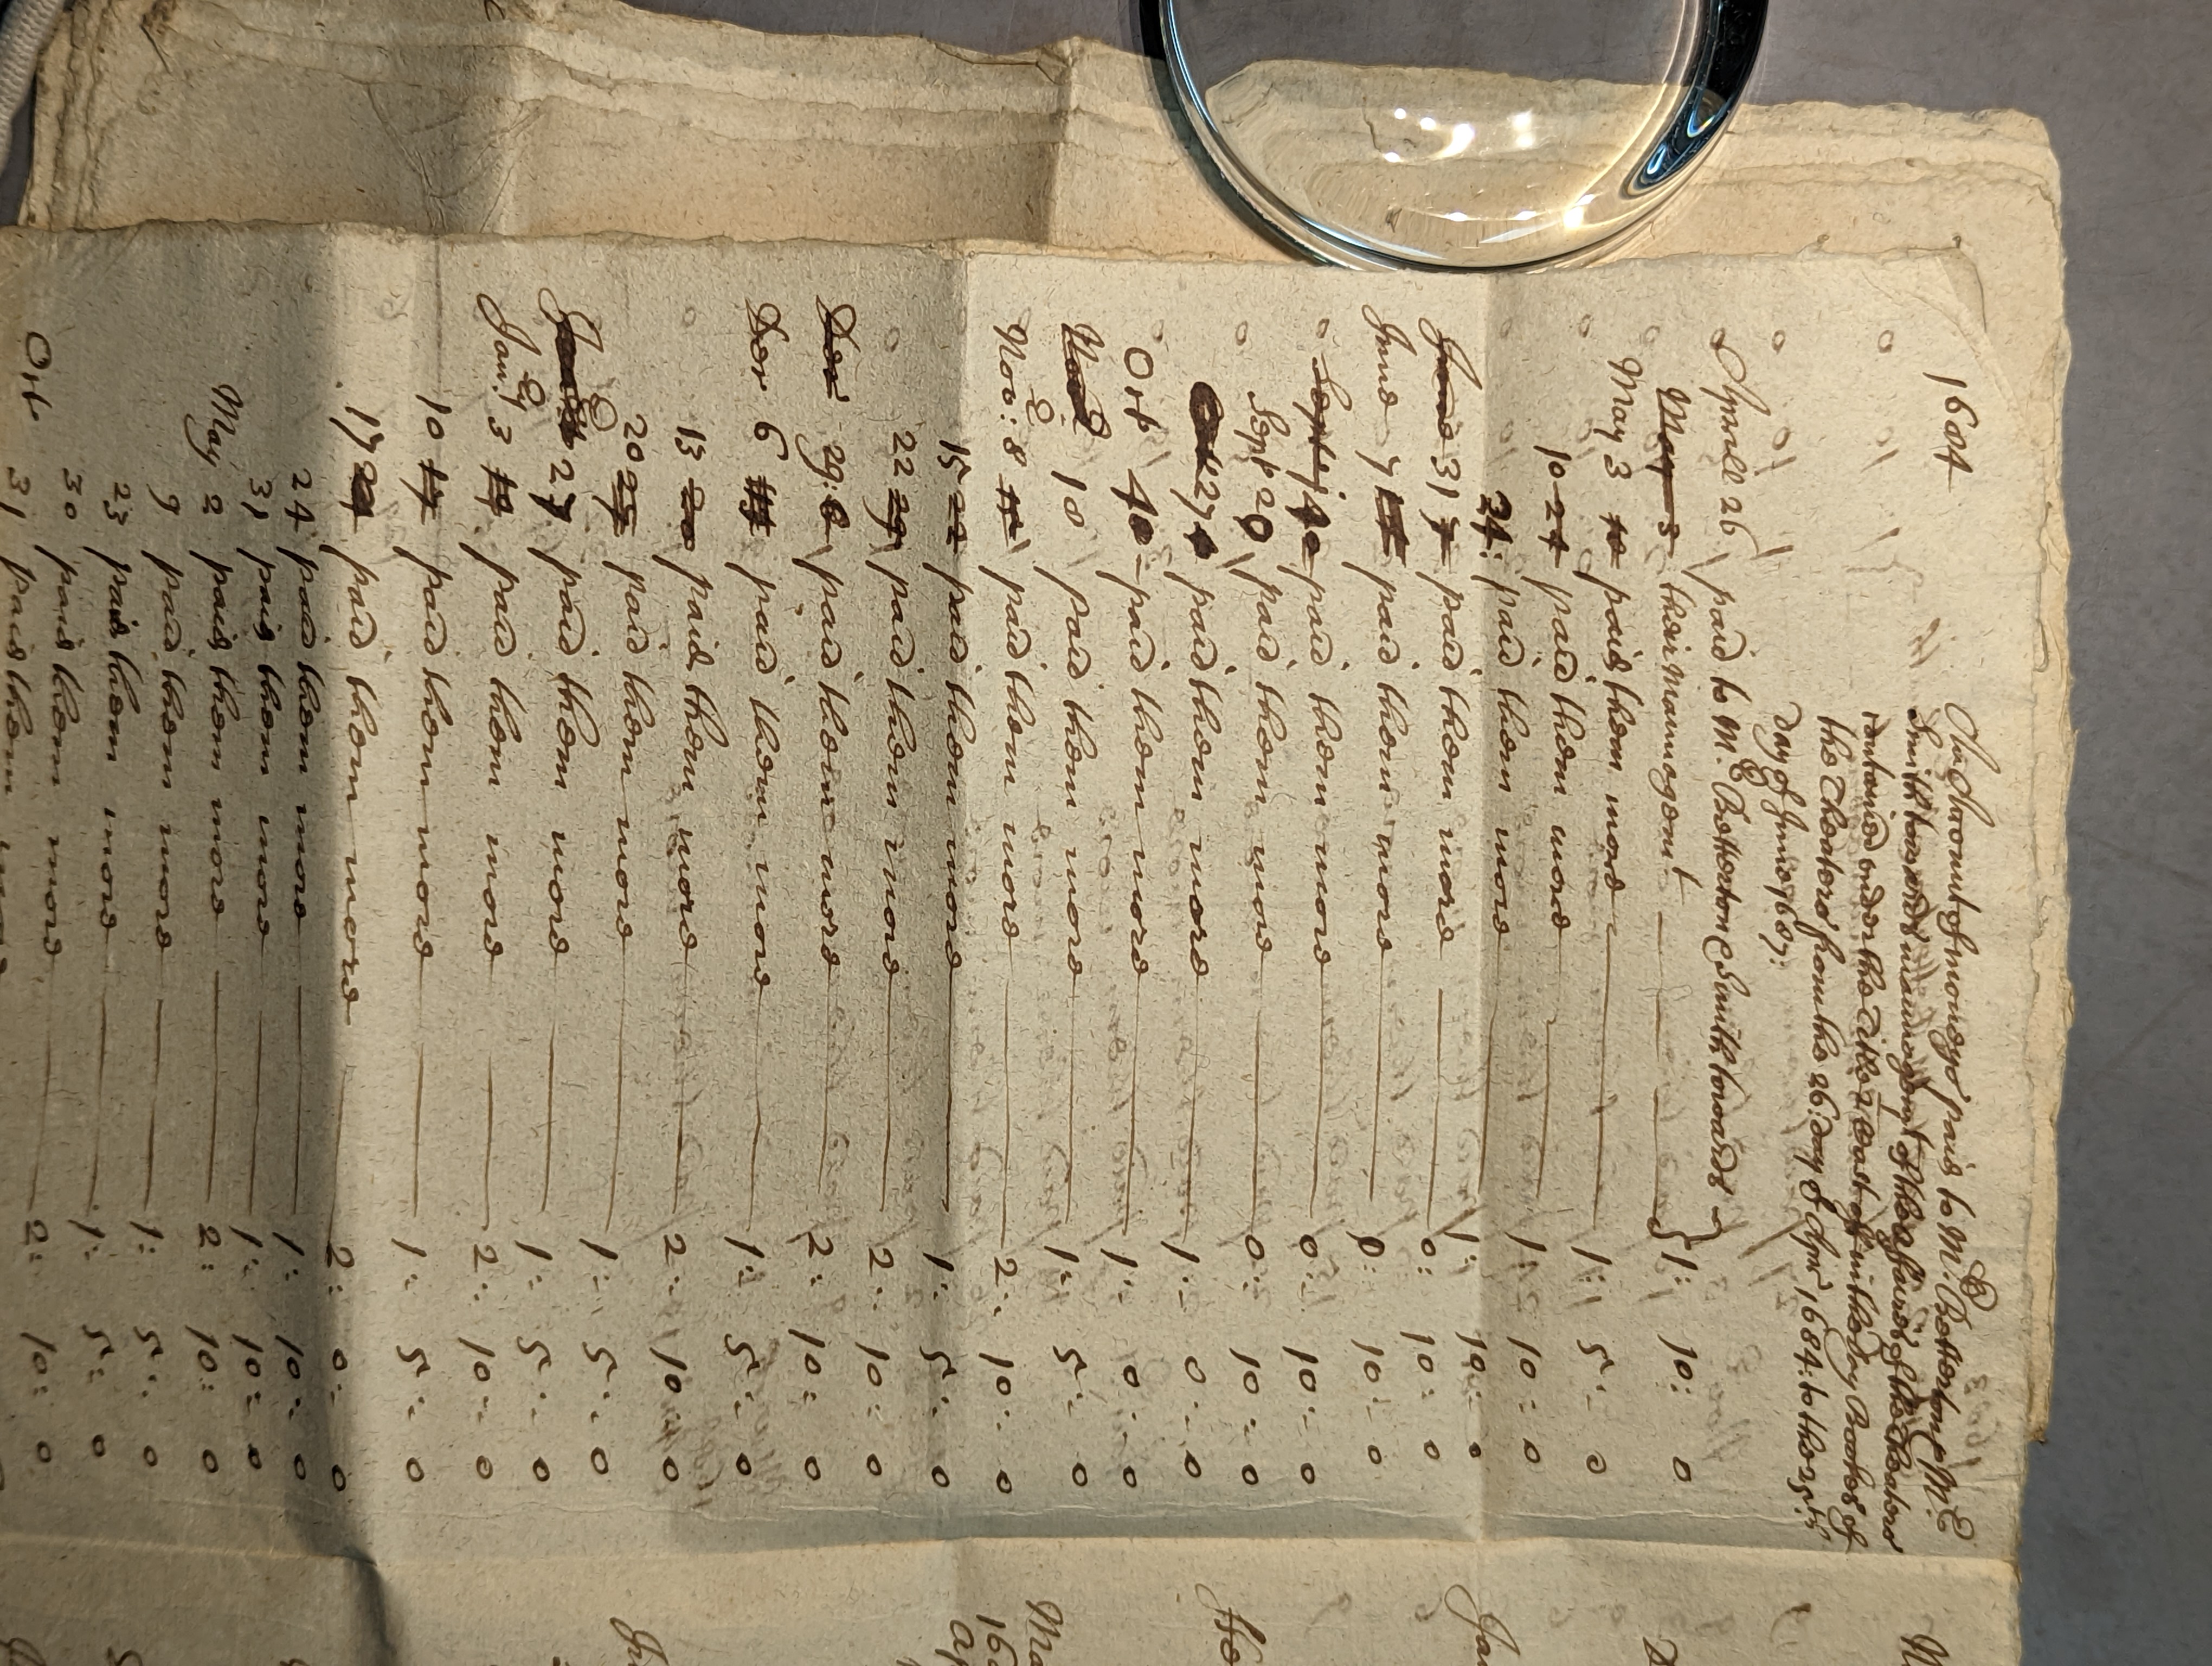 1684
An Account of moneys paid to Mr. Betterton & Mr.
Smith towards management of the affaires of the Theatere
contained under the Title & part of in the day Bookes of
the Theatere from the 26: day of Apr: 1684: to the 25th:
day of June 1687:
Aprill 26 paid to Mr. Betterton & Smith towards
May 3 their mannagemt. } 1: 10: 0
May 3 10 paid them more 1: 5: 0
10 24 paid them more 1: 10: 0
24: paid them more 1: 10: 0
June 31 7 paid them more 0: 10: 0
June 7 paid them more 0: 10: 0
Septr paid them more 0: 10: 0
Sept 20 paid them more 0: 10: 0
27 paid them more 1: 0: 0
Octr paid them more 1: 0: 0
10 paid them more 1: 5: 0
Nov: 8 paid them more 2: 10: 0
15 22 paid them more 1: 5: 0
22 29 paid them more 2: 10: 0
Decr 29: 6 paid them more 2: 10: 0
Decr 6 paid them more 1: 5: 0
13 20 paid them more 2: 10: 0
20 27 paid them more 1: 5: 0
27 paid them more 1: 5: 0
Jan: 3 10 paid them more 2: 10: 0
10 17 paid them more 1: 5: 0
17 24 paid them more 2: 0: 0
24 paid them more 1: 10: 0
31 paid them more 1: 10: 0
May 2 paid them more 2: 10: 0
9 paid them more 1: 5: 0
23 paid them more 1: 5: 0
30 paid them more 2: 10: 0
Octr 31 paid them